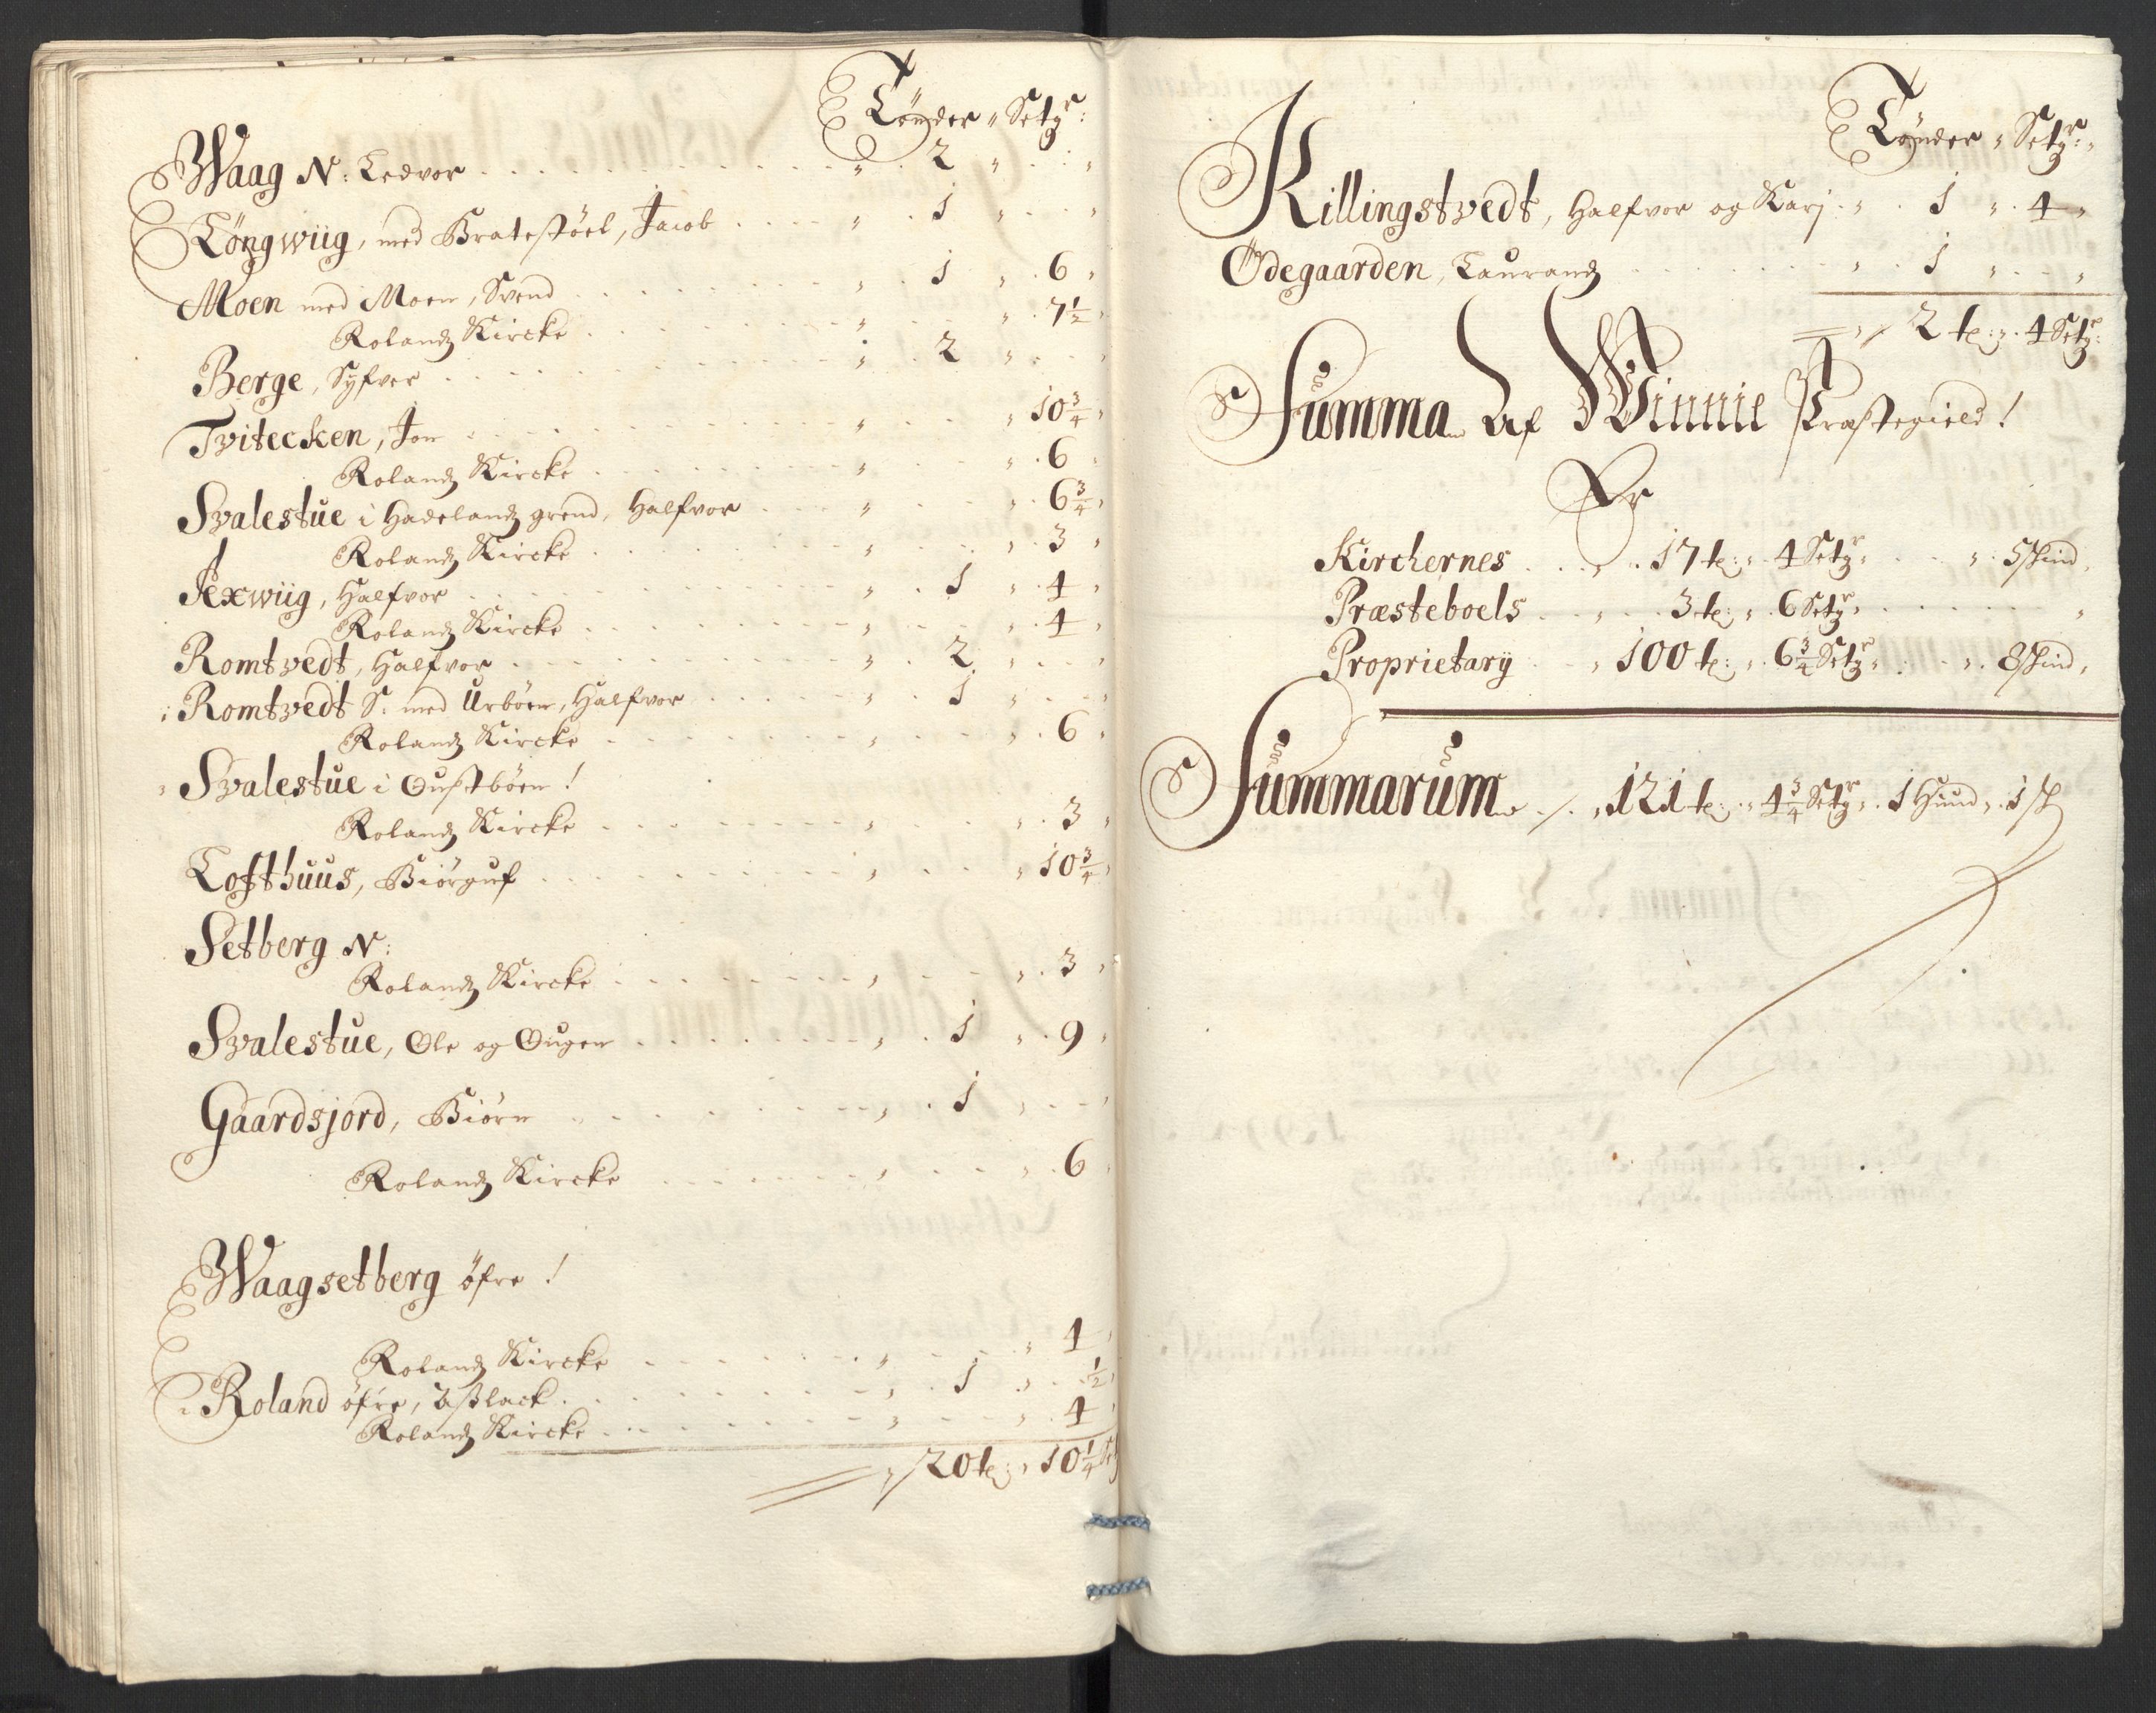 Tønder „ Setz:
Waag N: Ledvor „ 2 „ „
Löngwiig, med Bratestöel, Jacob „ 1 „ „
Moen med Moen, Svend „ 1 „ 6 „
Rolandz Kircke „ „ 7½ „
Berge, Syfver „ 2 „ „
Tvitecken, Jon „ „ 10¾ „
Rolandz Kircke „ „ 6 „
Svalestue i Hadelandz grend, Halfvor „ „ 6¾ „
Rolandz Kircke „ „ 3 „
Jexwiig, Halfvor „ 1 „ 4 „
Rolandz Kircke „ „ 4 „
Romtvedt, Halfvor „ 2 „ „
Romtvedt S. med Urböen, Halfvor „ 1 „ „
Rolandz Kircke „ „ 6 „
Svalestue i Oustböen!
Rolandz Kircke „ „ 3 „
Lofthuus, Biörguf „ „ 10¾ „
Setberg N:
Rolandz Kircke „ „ 3 „
Svalestue, Ole og Ougen „ 1 „ 9 „
Gaardsjord, Biörn „ 1 „ „
Rolandz Kircke „ „ 6 „
Waagsetberg öfre!
Rolandz Kircke „ „ 4 „
Roland öfre, Aslack „ 1 „ ½ „
Rolandz Kircke „ „ 4 „
20 te: „ 10¼
Tønder „ Setzr: „
Killingstvedt, Halfvor og Karj „ 1 „ 4 „
Ödegaarden, Taurand „ 1 „ „
2 te: „ 4 Setzr:
Summa Af Winnie Præstegield!
Er
Kirchernes „ 17 te: „ 4 Setzr „ „ 5 skind „
Præsteboels „ 3 te: „ 6 Setzr „ „
Proprietarÿ „ 100 te: „ 6¾ Setzr „ „ 8 skind „
Summarum „ 121 te: „ 4¾ Setzr „ 1 Huud „ 1 sk